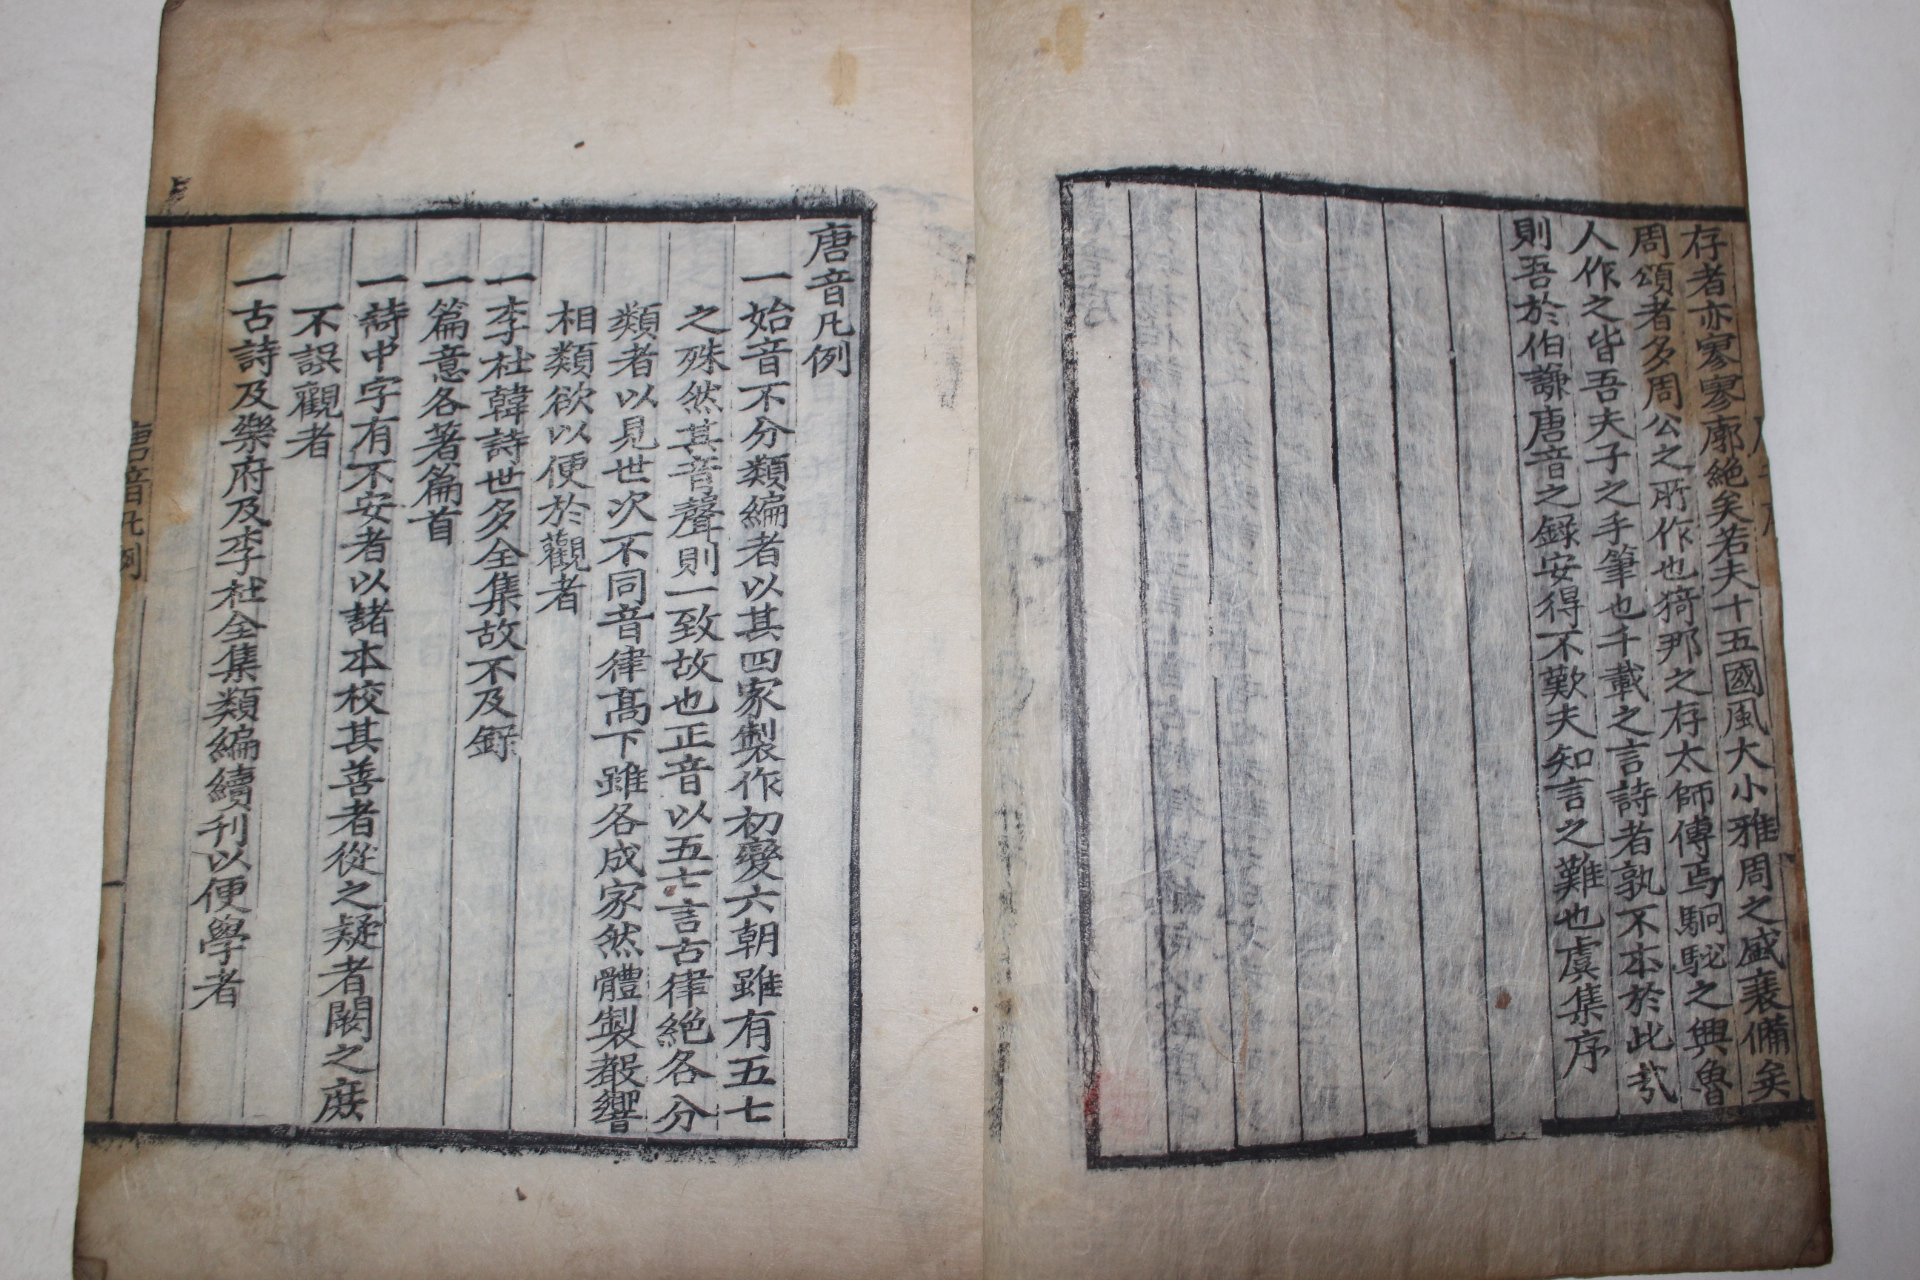 存者亦寥寥廓絶矣若夫十五國風大小雅周之盛衰備矣
周頌者多周公之所作也猗那之存太師傳焉駉駜之興魯
人作之皆吾夫子之手筆也千載之言詩者孰不本於此㢤
則吾於伯謙唐音之録安得不歎夫知言之難也虞集序
唐音凡例
一始音不分類編者以其四家製作初變六朝雖有五七
之殊然其音聲則一致故也正音以五七言古律絶各分
類者以見世次不同音律髙下雖各成家然體製聲響
相類欲以便於觀者
一李杜韓詩世多全集故不及録
一篇意各著篇首
一詩中字有不安者以諸本校其善者從之疑者闕之庶
不誤觀者
一古詩及樂府及李杜全集類編續刊以便學者
唐音凡例